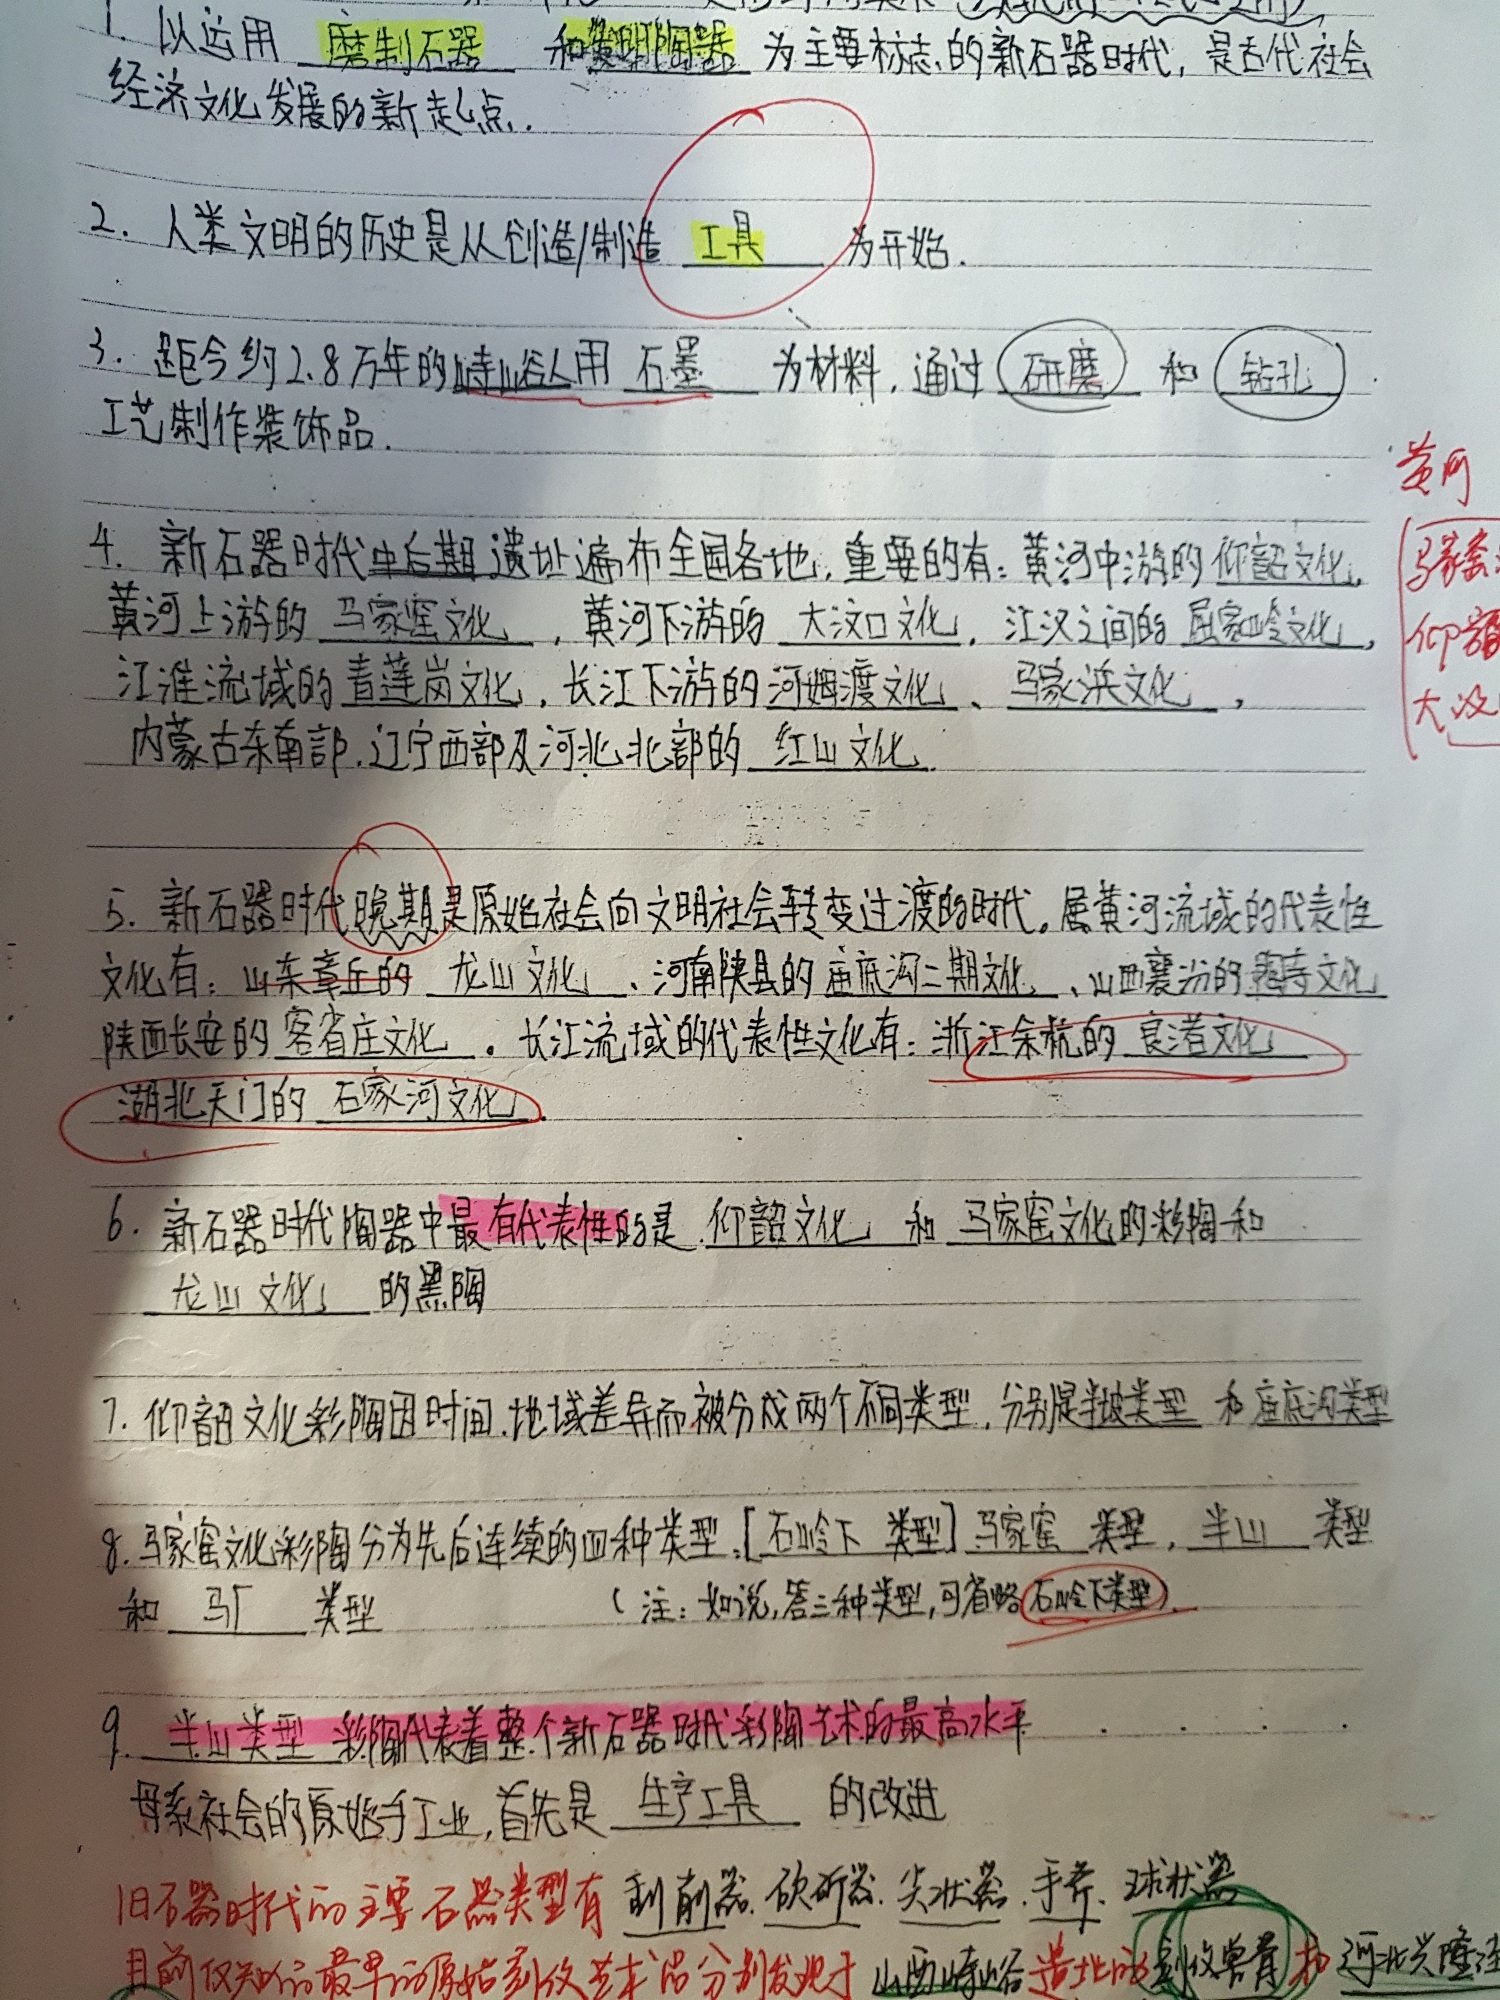 1. 以运用 磨制石器 和发明陶器 为主要标志的新石器时代，是古代社会
经济文化发展的新起点.
2. 人类文明的历史是从创造/制造 工具 为开始.
3. 距今约2.8万年的峙峪人用 石墨 为材料，通过 研磨 和 钻孔
工艺制作装饰品.
黄河
4. 新石器时代中后期遗址遍布全国各地，重要的有：黄河中游的 仰韶文化，
马家窑
黄河上游的 马家窑文化 ，黄河下游的 大汶口文化，江汉之间的 屈家岭文化，
仰韶
江淮流域的 青莲岗文化，长江下游的 河姆渡文化 、 马家浜文化 ，
大汶
内蒙古东南部、辽宁西部及河北北部的 红山文化.
5. 新石器时代晚期是原始社会向文明社会转变过渡的时代。属黄河流域的代表性
文化有：山东章丘的 龙山文化 、河南陕县的 庙底沟二期文化 、山西襄汾的 陶寺文化
陕西长安的 客省庄文化 。长江流域的代表性文化有：浙江余杭的 良渚文化
湖北天门的 石家河文化.
6. 新石器时代陶器中最有代表性的是 仰韶文化 和 马家窑文化的彩陶和
龙山文化 的黑陶
7. 仰韶文化彩陶因时间、地域差异而被分成两个不同类型，分别是半坡类型 和 庙底沟类型
8. 马家窑文化彩陶分为先后连续的四种类型：[石岭下 类型] 马家窑 类型，半山 类型
和 马厂 类型 （注：如说，答三种类型，可省略石岭下类型）.
9. 半山类型 彩陶代表着整个新石器时代彩陶艺术的最高水平
母系社会的原始手工业，首先是 生产工具 的改进
旧石器时代的主要石器类型有 刮削器、砍斫器、尖状器、手斧、球状器
目前仅知的最早的原始刻纹艺术品分别发现于 山西峙峪遗址的刻纹兽骨和 河北兴隆